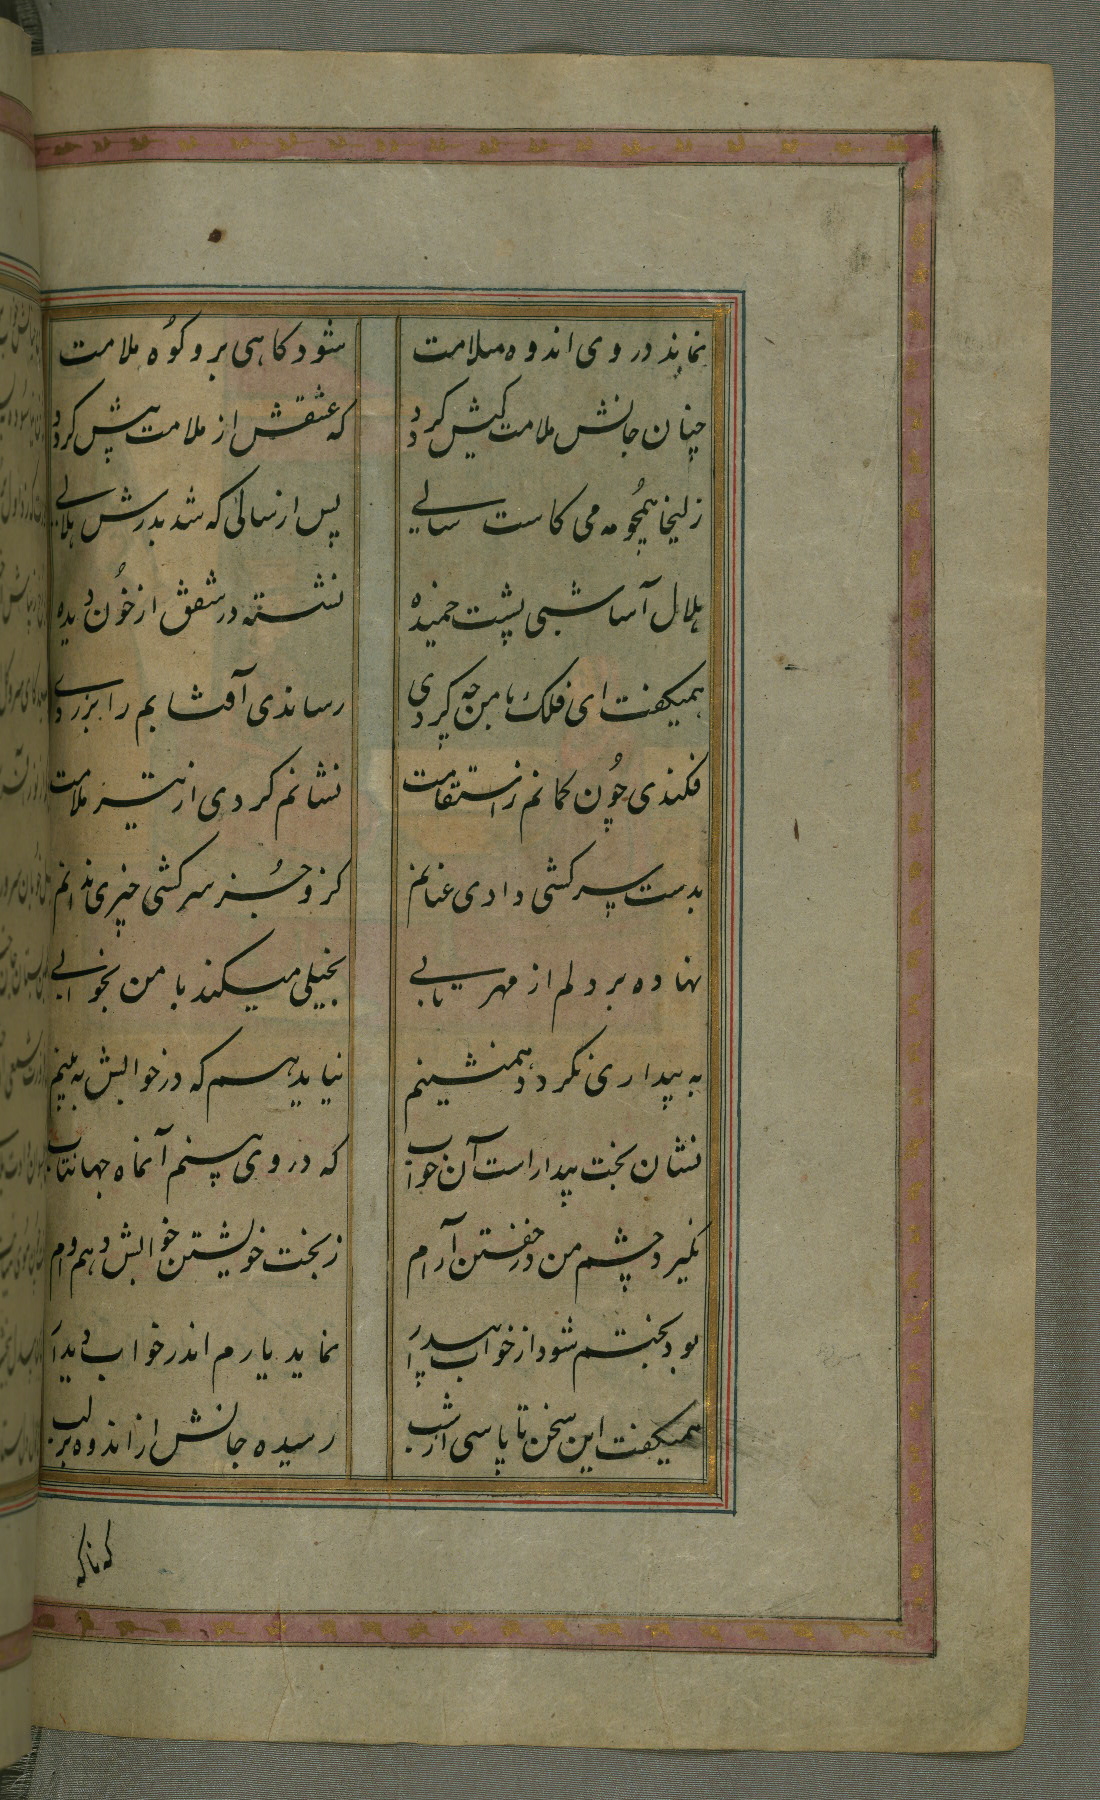 نماند در وی اندوه سلامت
شود کاهی برو کوه ملامت
چنان جانش ملامت کیش کردد
که عشقش از ملامت پیش کردد
زلیخا همچو مه می کاست سالی
پس از سالی که شد بدرش هلالی
هلال آسا شبی پشت خمیده
نشسته در شفق از خون دیده
همیکفت ای فلک با من چه کردی
رساندی آفتابم را بزردی
فکندی چون کمانم ز استقامت
نشانم کردی از تیر ملامت
بدست سرکشی دادی عنانم
کز و جز سرکشی چیزی ندانم
نهاده بر دلم از مهر تابی
بخیلی میکند با من بخوابی
به بیداری نکردد همنشینم
نیاید هم که در خوابش به بینم
نشان بخت بیدار است آن خواب
که در وی بینم آنماه جهانتاب
نکیرد چشم من در خفتن آرام
ز بخت خویشتن خوابش دهم وام
بود بختم شود از خواب بیدار
نماید یارم اندر خواب دیدار
همیکفت این سخن تا پاسی از شب
رسیده جانش از اندوه بر لب
که ناکه